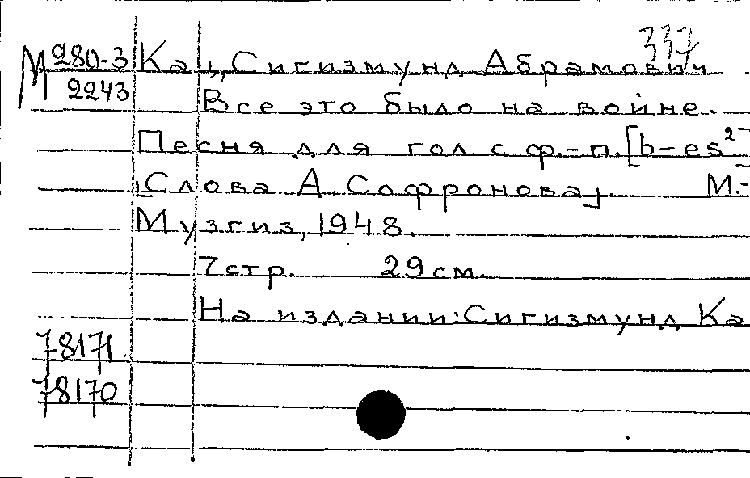 337
М 280-3 Кац, Сигизмунд Абрамович
2243 Все это было на войне.
Песня для гол с ф.-п. [b-es²-
[Слова А Софронова]. М.-
Музгиз, 1948.
7 стр. 29 см.
На издании: Сигизмунд Ка
78171
78170